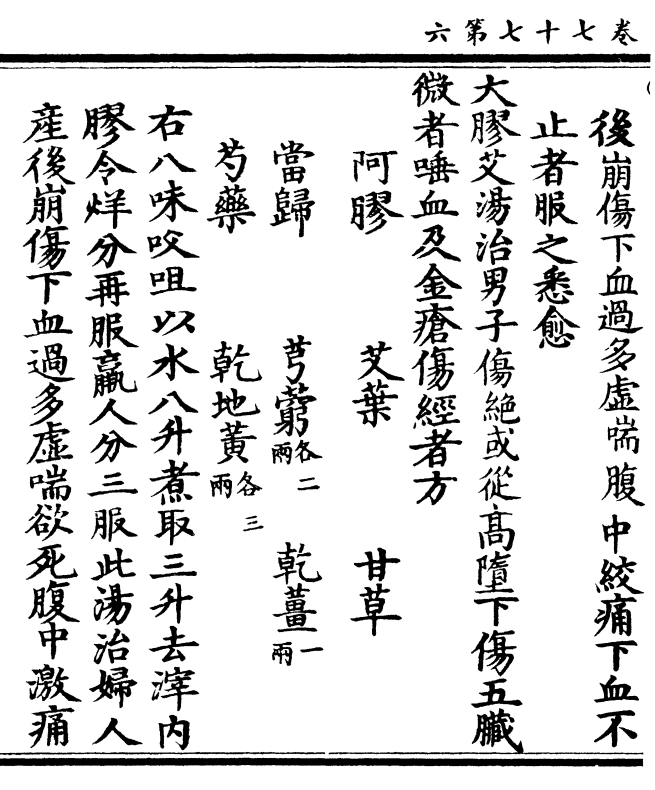 卷七十七第六
後崩傷下血過多虛喘腹中絞痛下血不
止者服之悉愈
大膠艾湯治男子傷絶或從高墮下傷五臟
微者唾血及金瘡傷經者方
阿膠　艾葉　甘草
當歸　芎藭各二兩　乾薑一兩
芍藥　乾地黃各三兩
右八味㕮咀以水八升煮取三升去滓内
膠令烊分再服羸人分三服此湯治婦人
産後崩傷下血過多虛喘欲死腹中激痛